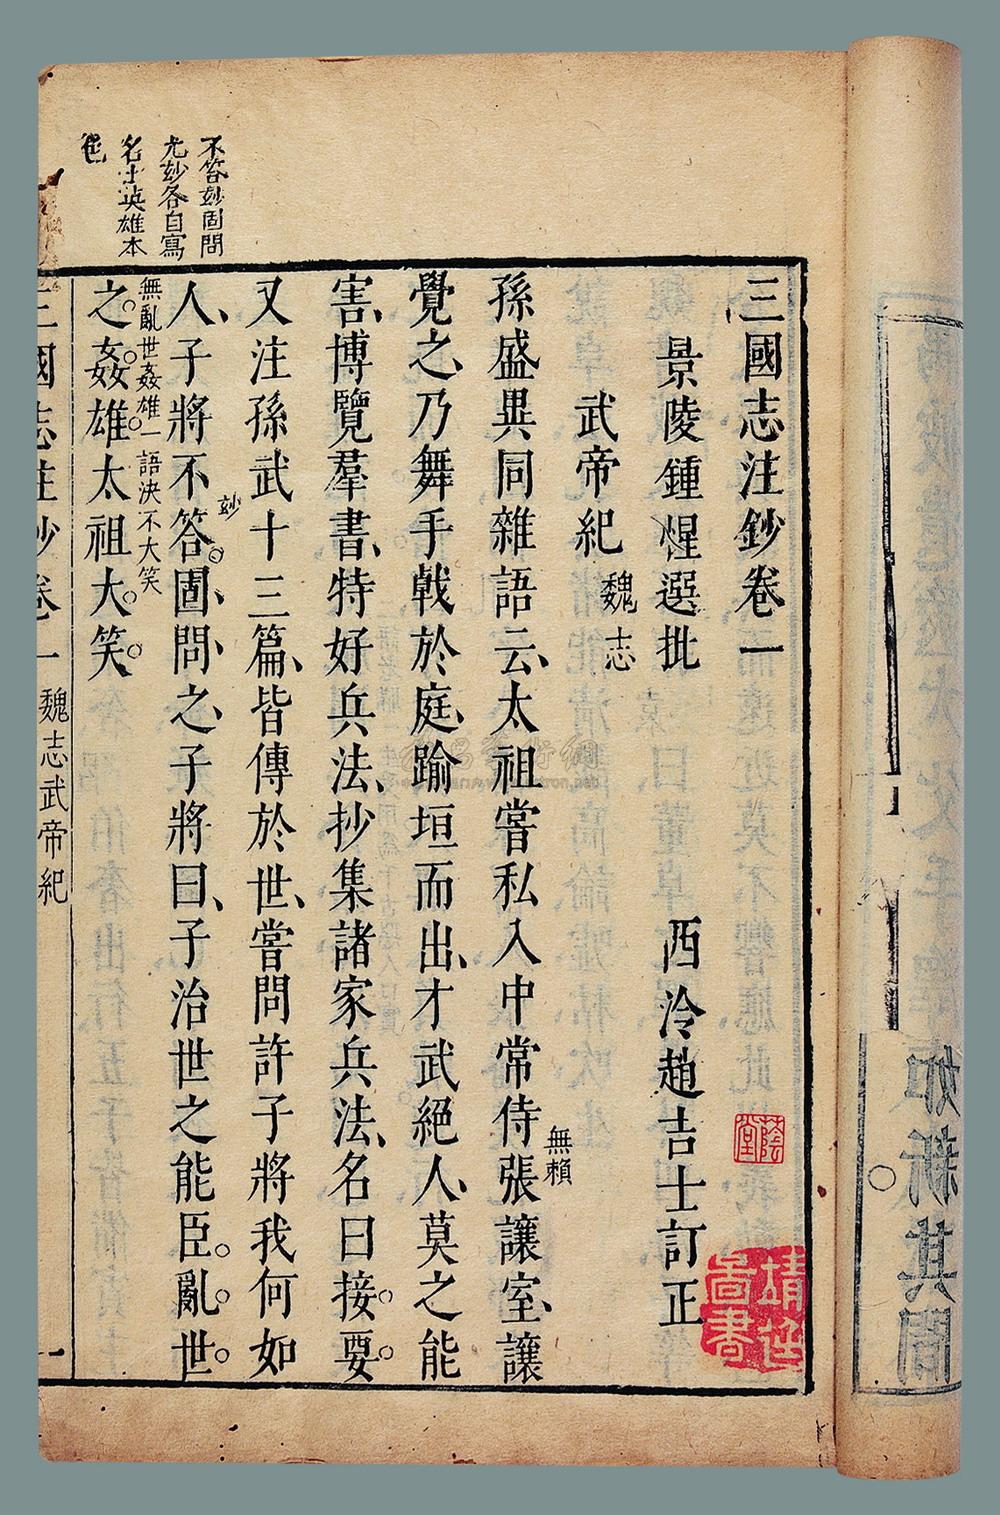 三國志注鈔卷一
景陵鍾惺選批 西泠趙吉士訂正
武帝紀 魏志
孫盛異同雜語云太祖嘗私入中常侍張讓室讓
無賴
覺之乃舞手戟於庭踰垣而出才武絕人莫之能
害博覽羣書特好兵法抄集諸家兵法名曰接要
又注孫武十三篇皆傳於世嘗問許子將我何如
妙
人子將不答固問之子將曰子治世之能臣亂世
無亂世姦雄一語決不大笑
之姦雄太祖大笑
不答妙固問
尤妙各自寫
名士英雄本
色
三國志注鈔卷一 魏志武帝紀 一
蔭堂
圖書
如新其間